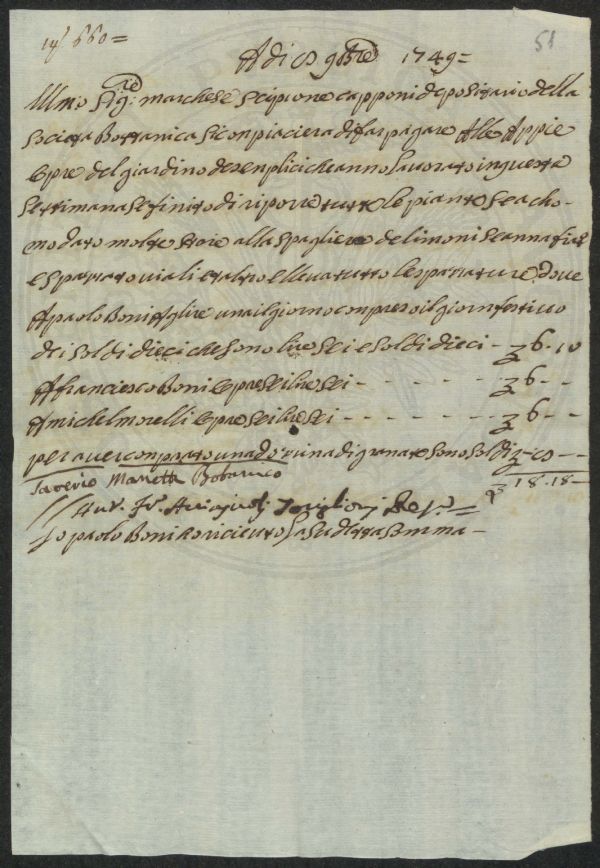 nº 660=
58
Adi 8 9bre 1749=
Illmo: Sigre: marchese Scipione capponi depositario della
Società Bottanica Si conpiacierà di far pagare Alle Appie
e opre del giardino de senplici che anno Lavorato in questa
Settimana Se finito di riporre tutte le piante Se acho-
modato molte stoie alla Spagliere de limoni Se
e spazzato viali et altro e llevato tutto le spazzature dove
A paolo Boni A lire una il giorno conpreso il giorn festivo
dei soldi dieci che sono lire sei e soldi dieci - 6.10
A franciesco Boni opre sei lire sei - - - - - 6 - -
A michel morelli opre sei lire sei - - - - - - 6 - -
per aver conprato una dozina di granate sono soldi - 8 - -
18.18-
Saverio Manetti Botanico
Io paolo Boni ho riceuto La Sudetta Somma -